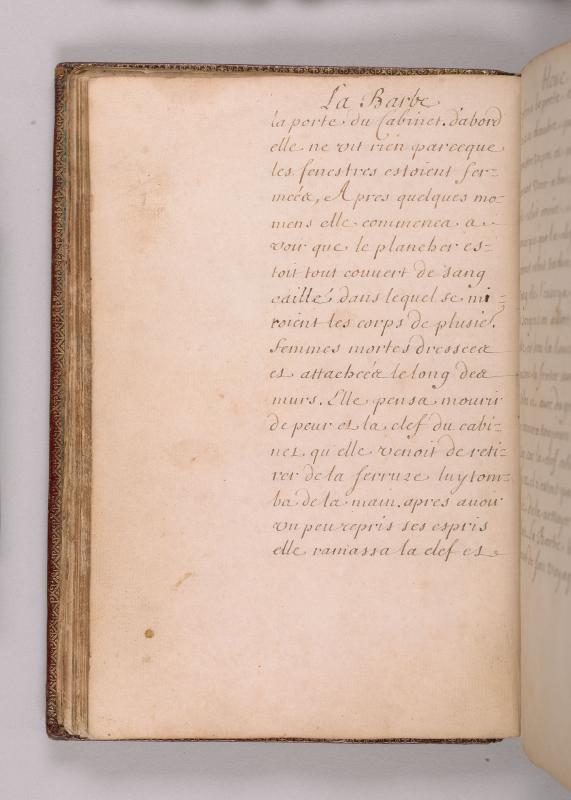 La Barbe
la porte du Cabinet. d'abord
elle ne vit rien parceque
les fenestres estoient fer-
mées, Apres quelques mo-
mens elle commenca a
voir que le plancher es-
toit tout couvert de sang
caillé dans lequel se mi-
roient les corps de plusieś.
femmes mortes dressees
et attachées le long des
murs. Elle pensa mourir
de peur et la clef du cabi-
net qu'elle venoit de reti-
rer de la serrure luy tom-
ba de la main. apres avoir
un peu repris ses espris
elle ramassa la clef et